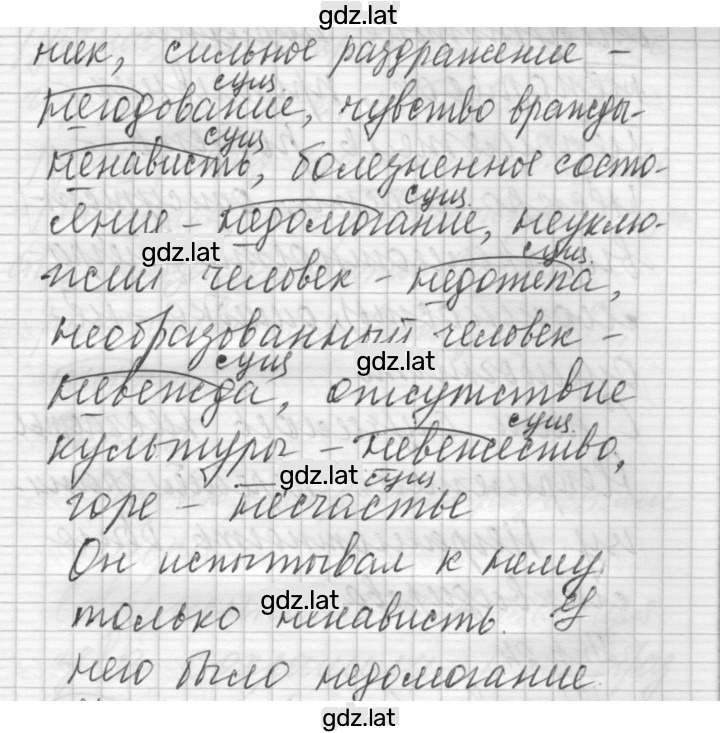 gdz.lat
ник, сильное раздражение -
сущ.
негодование, чувство вражды-
сущ
ненависть, болезненное состо-
сущ.
яние - недомогание, неуклю-
gdz.lat
сущ.
жий человек - недотёпа,
необразованный человек -
сущ
gdz.lat
невежда, отсутствие
сущ.
культуры - невежество,
gdz.lat сущ.
горе - несчастье
Он испытывал к нему
gdz.lat
только ненависть. У
него было недомогание.
gdz.lat